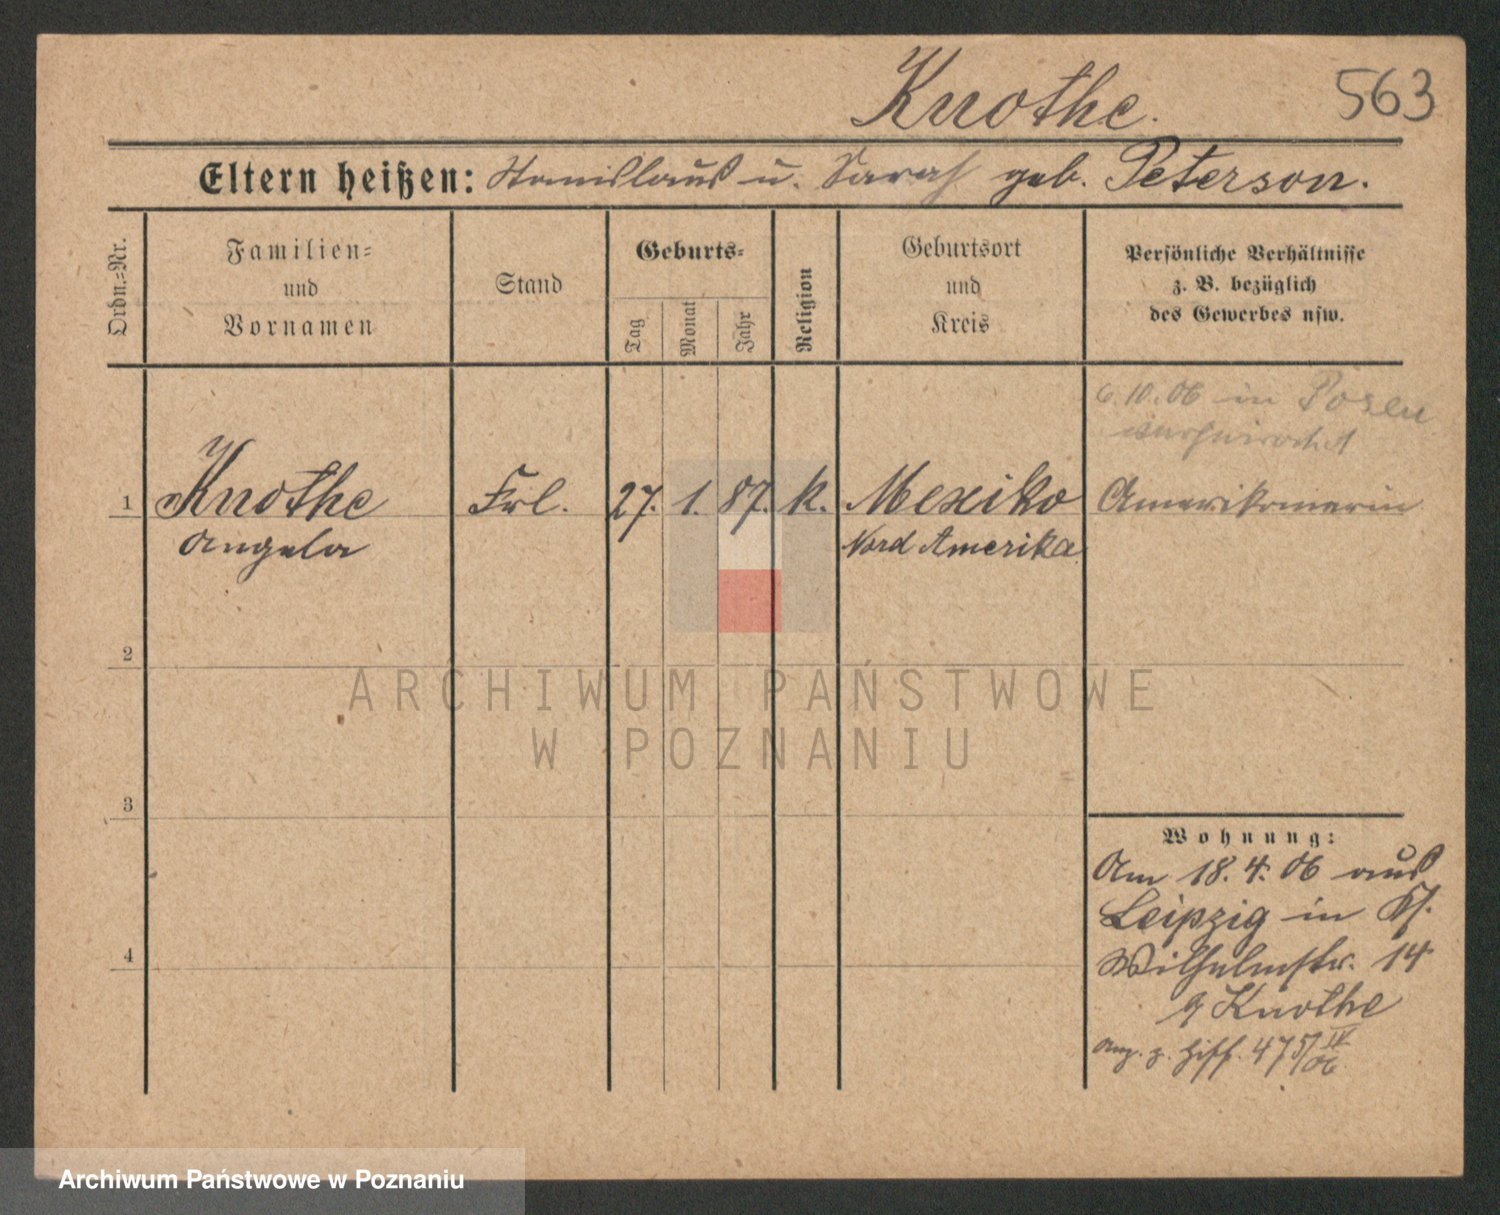 Knothe. 563
Eltern heißen: Stanislaus u. Sarah geb. Peterson.
Ordn.=Nr.
Familien=
und
Vornamen
Stand
Geburts=
Tag
Monat
Jahr
Religion
Geburtsort
und
Kreis
Persönliche Verhältnisse
z. B. bezüglich
des Gewerbes usw.
6.10.06 in Posen
verheiratet
1 Knothe Frl. 27. 1. 87. k. Mexiko Amerikanerin
Angela Nord Amerika
2
ARCHIWUM PAŃSTWOWE
W POZNANIU
3
Wohnung:
Am 18.4.06 aus
Leipzig in
4
Wilhelmstr. 14
Knothe
475/IV 06
Archiwum Państwowe w Poznaniu